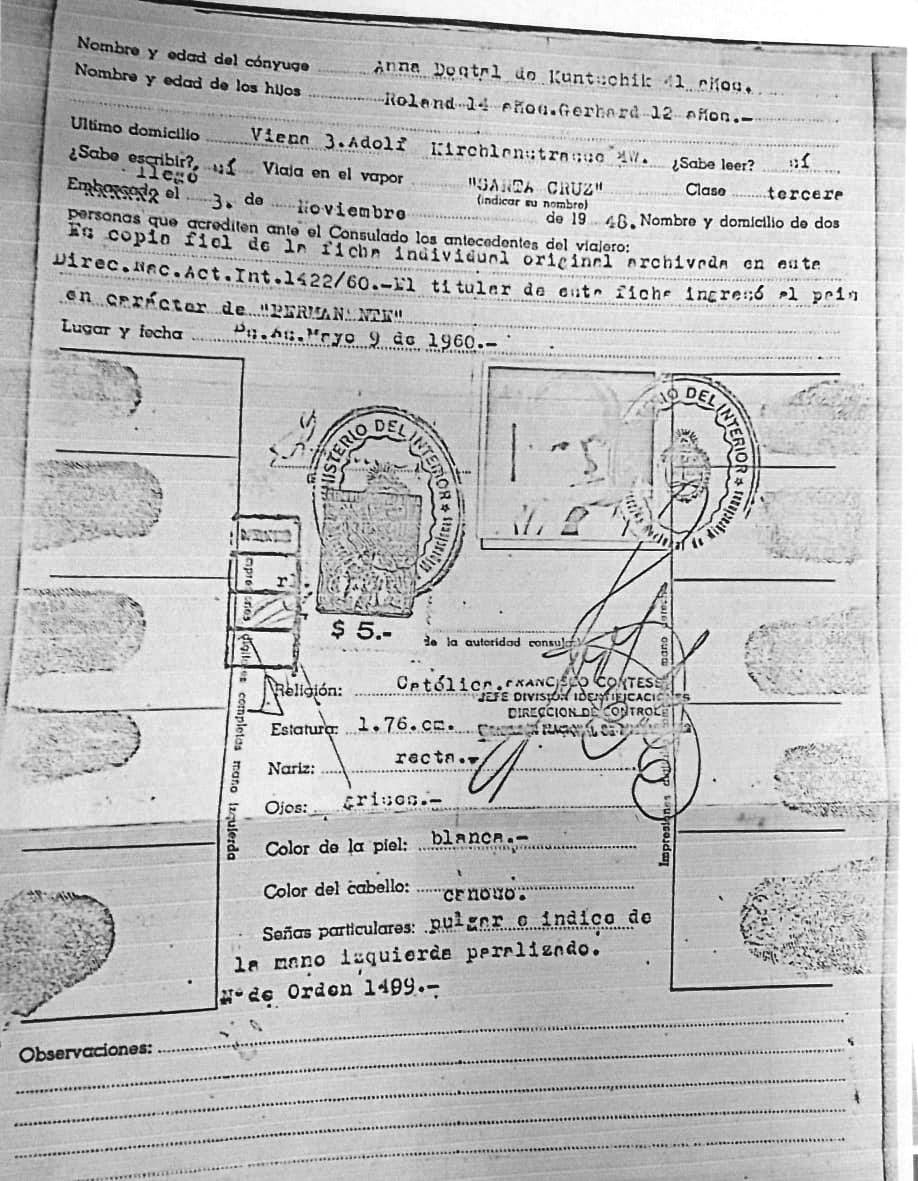 Nombre y edad del cónyuge Anna de Kuntschik 41 años.
Nombre y edad de los hijos Roland 14 años.Gerhard 12 años.-
Ultimo domicilio Viena 3.Adolf ¿Sabe leer? sí
¿Sabe escribir? sí Viaja en el vapor "SANTA CRUZ" Clase tercera
llegó
(indicar su nombre)
Embarcado el 3. de Noviembre de 19 48. Nombre y domicilio de dos
personas que acrediten ante el Consulado los antecedentes del viajero:
Es copia fiel de la ficha individual original archivada en esta
Direc.Nac.Act.Int.1422/60.-El titular de esta ficha ingresó al país
en carácter de "PERMANENTE"
Lugar y fecha Bs.As.Mayo 9 de 1960.-
MINISTERIO DEL INTERIOR
Migraciones
MINISTERIO DEL INTERIOR
Dirección Nacional de Migraciones
$ 5.-
de la autoridad consular
Impresiones digitales completas mano izquierda
Religión: Católica.
FRANCISCO CORTESE
JEFE DIVISION IDENTIFICACIONES
DIRECCION DE CONTROL
Estatura: 1.76.cm.
Nariz: recta.-
Ojos: grises.-
Color de la piel: blanca.-
Color del cabello: canoso.
Señas particulares: pulgar e indice de
la mano izquierda paralizado.
Nº de Orden 1499.-
Observaciones: